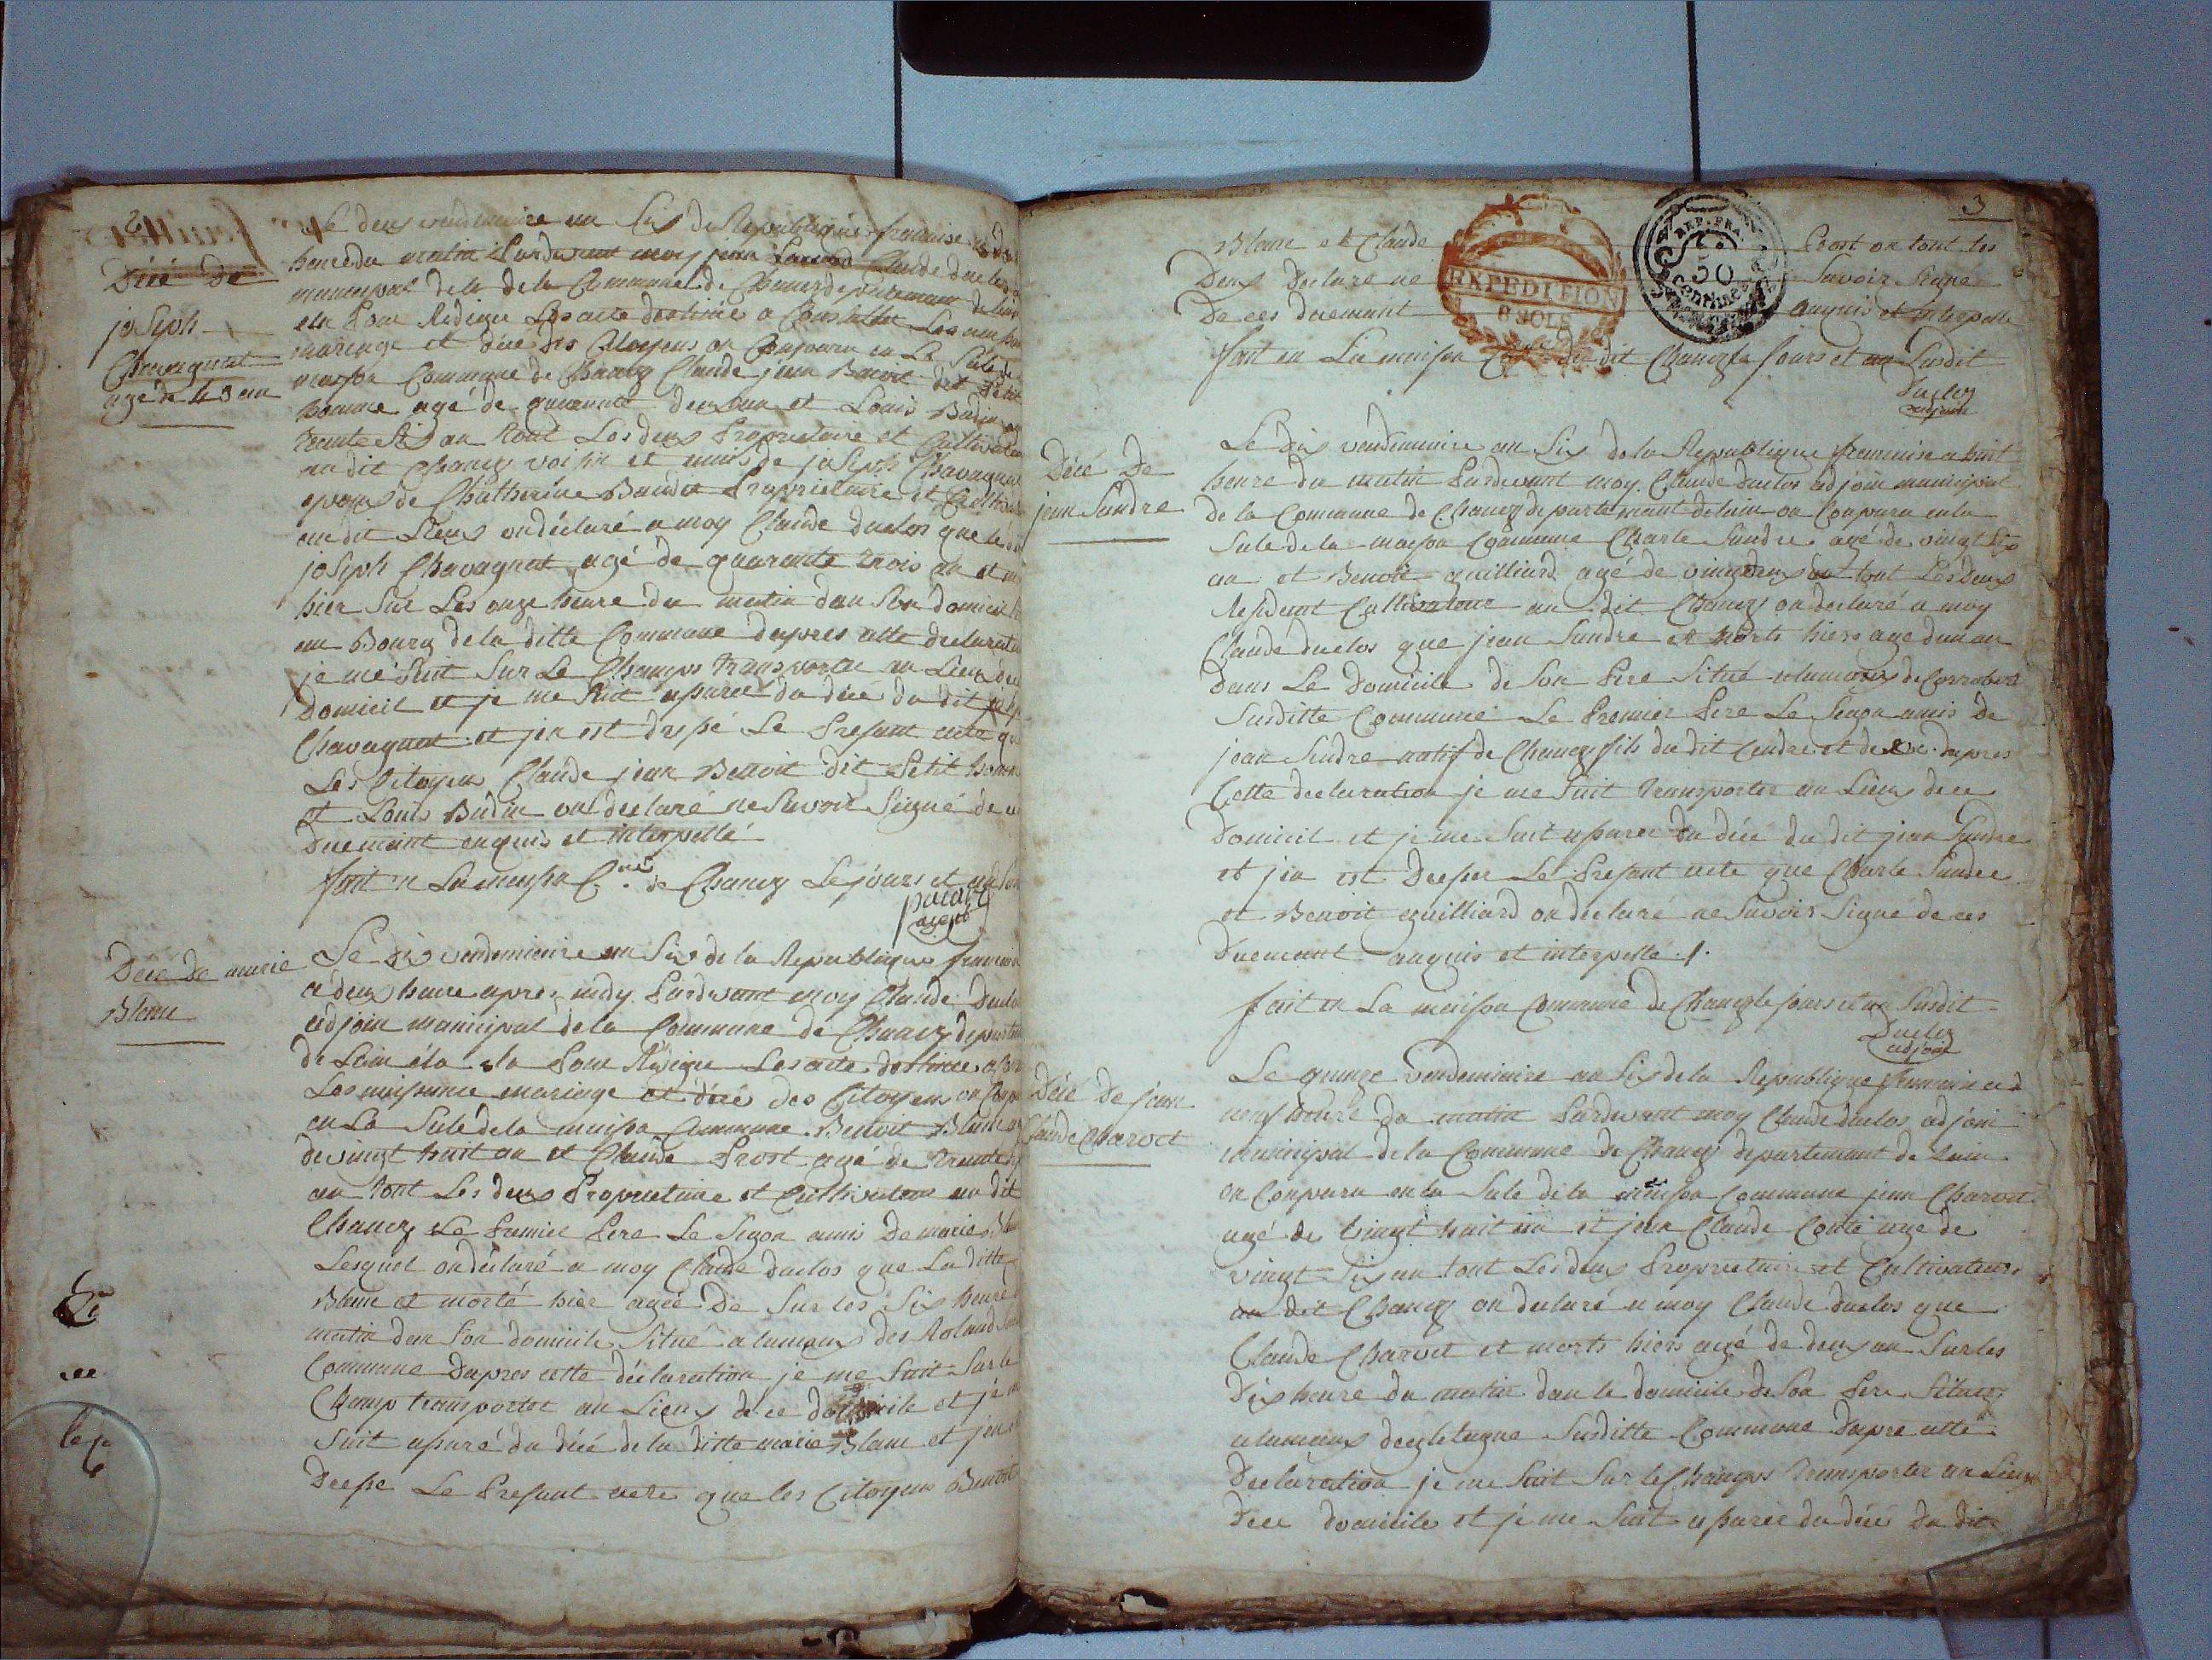 2
Décé De
joseph
Chavagnat
agé de 43 an
Le deux vendemiaire an Six de Republique francaise
heure du matin Pardevant moy jean Claude duclos
municipal de la de la Commune de Chanez departement de lain
elu Pour Rediger Les acte destinée a Constater Les
mariage et décé des Citoyens on Conparu en La Sale de
maison Commune de Chanez Claude jean Benoit dit Petit
homme agé de quarante deux an et Louis Budin
trante Six an tout Les deux Proprietaire et Cultivateur
au dit Chanez voisin et amis de joseph Chavagnat
epoux de Chatherine Baudet Proprietaire et Cultivateur
au dit Lieux on déclaré a moy Claude duclos que le dit
joseph Chavagnat agé de quarante trois an et mort
hier Sur Les onze heure du matin dan Son domicile
au Bourg de la ditte Commune dapres cette declaration
je me Suit Sur Le Champs transporter au Lieu de
Domicil et je me Suit asuree du décé du dit joseph
Chavagnat et jen est dressé Le Presant acte que
Les Citoyens Claude jean Benoit dit Petit homme
et Louis Budin on declaré ne Savoir Signé de ce
Duemant enquis et interpellé
fait en La maison Cne de Chanez Le jours et an
agent
Décé De marie
Blanc
Le dix vendemiaire an Six de la Republique francaise
a deux heure apres midy Pardevant moy Claude Duclos
adjoin municipal de la Commune de Chanez departement
de Lain elu Pour Rediger Les acte destinee a
Les naissance mariage et décé des Citoyens on Conparu
en La Sale de la maison Commune Benoit Blanc agé
de vingt huit an et Claude Prost agé de trante
an tout Les deux Proprietaire et Cultivateur au dit
Chanez Le Premier Pere Le Segon amis De marie Blanc
Lesquel on déclaré a moy Claude duclos que La ditte
Blanc et morte hier agée De Sur les Six heure
matin dan Son domicile Situé a lamaux des Roland
Commune Dapres cette déclaration je me Suit Sur le
Champ transporter au Lieux de ce domicile et je me
Suit asuré du décé de la ditte marie Blanc et jen est
Dresse Le Presant acte que les Citoyens Benoit
3
Blanc et Claude Prost on tout les
Deux declaré ne Savoir Signe
De ces duemant anquis et interpellé
EXPEDITION
8 SOLS
REP. FRA.
50
centimes
fait en La maison Cne du dit Chanez le jours et an Susdit
Duclos
adjoin
Décé De
jean Sandre
Le Dix vendemiaire an Six de la Republique francaise a huit
heure du matin Pardevant moy Claude duclos adjoin municipal
de la Commune de Chanez departemant de lain on Conparu en la
Sale de la maison Commune Charle Sandre agé de vingt Six
an et Benoit guilliard agé de vingt deux an tout Les Deux
Resident Cultivateur au dit Chanez on declaré a moy
Claude duclos que jean Sandre et morts hiers age dun an
Dans Le Domicile de Son Pere Situé a lamaux de Corrobert
Susditte Commune Le Premier Pere Le Segon amis de
jean Sandre natif de Chanez fils du dit Sandre et de dapres
Cette declaration je me Suit transporter au Lieux de ce
Domicil et je me Suit asurer Du décé du dit jean Sandre
et jen est Dresser Le Presant acte que Charle Sandre
et Benoit guilliard on declaré ne Savoir Signé de ces
Duemant anquis et interpellé ./.
fait en La maison Commune de Chanez le jours et an Susdit
Duclos
adjoin
Décé De jean
Claude Charvet
Le quinze vendemiaire an Six de la Republique francaise a
neuf heure du matin Pardevant moy Claude duclos adjoin
municipal de la Commune de Chanez departemant de Lain
on Conparu en la Sale de la maison Commune jean Charvet
agé de vingt huit an et jean Claude Conte age de
vingt Six an tout Les deux Proprietaire et Cultivateur
au dit Chanez on declaré a moy Claude duclos que
Claude Charvet et morts hiers agé de deux an Sur les
Dix heure du matin dan le domicile de Son Pere Situez
a lamaux Susditte Commune Dapre cette
Declaration je me Suit Sur le Champs transporter au Lieux
De ce domicile et je me Suit asurer du décé Du dit